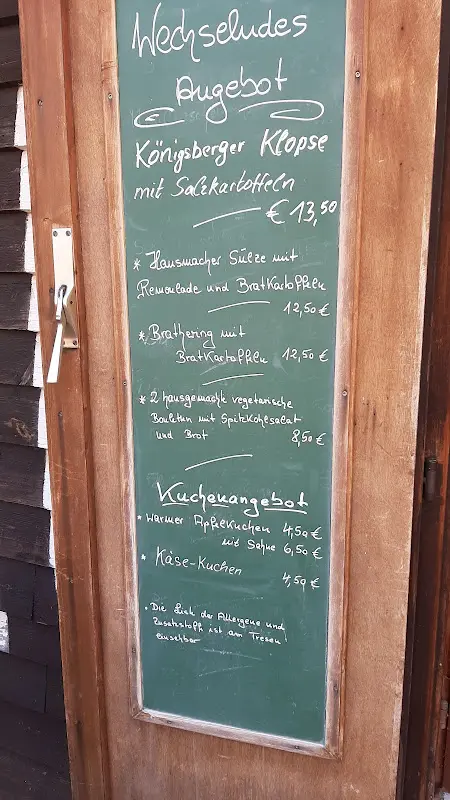 Wechselndes
Angebot
Königsberger Klopse
mit Salzkartoffeln
€ 13,50
* Hausmacher Sülze mit
Remoulade und Bratkartoffeln
12,50 €
* Brathering mit
Bratkartoffeln 12,50 €
* 2 hausgemachte vegetarische
Bouletten mit Spitzkohlsalat
und Brot 8,50 €
Kuchenangebot
* Warmer Apfelkuchen 4,50 €
mit Sahne 6,50 €
* Käse-Kuchen
4,50 €
• Die Liste der Allergene und
Zusatzstoffe ist am Tresen
einsehbar